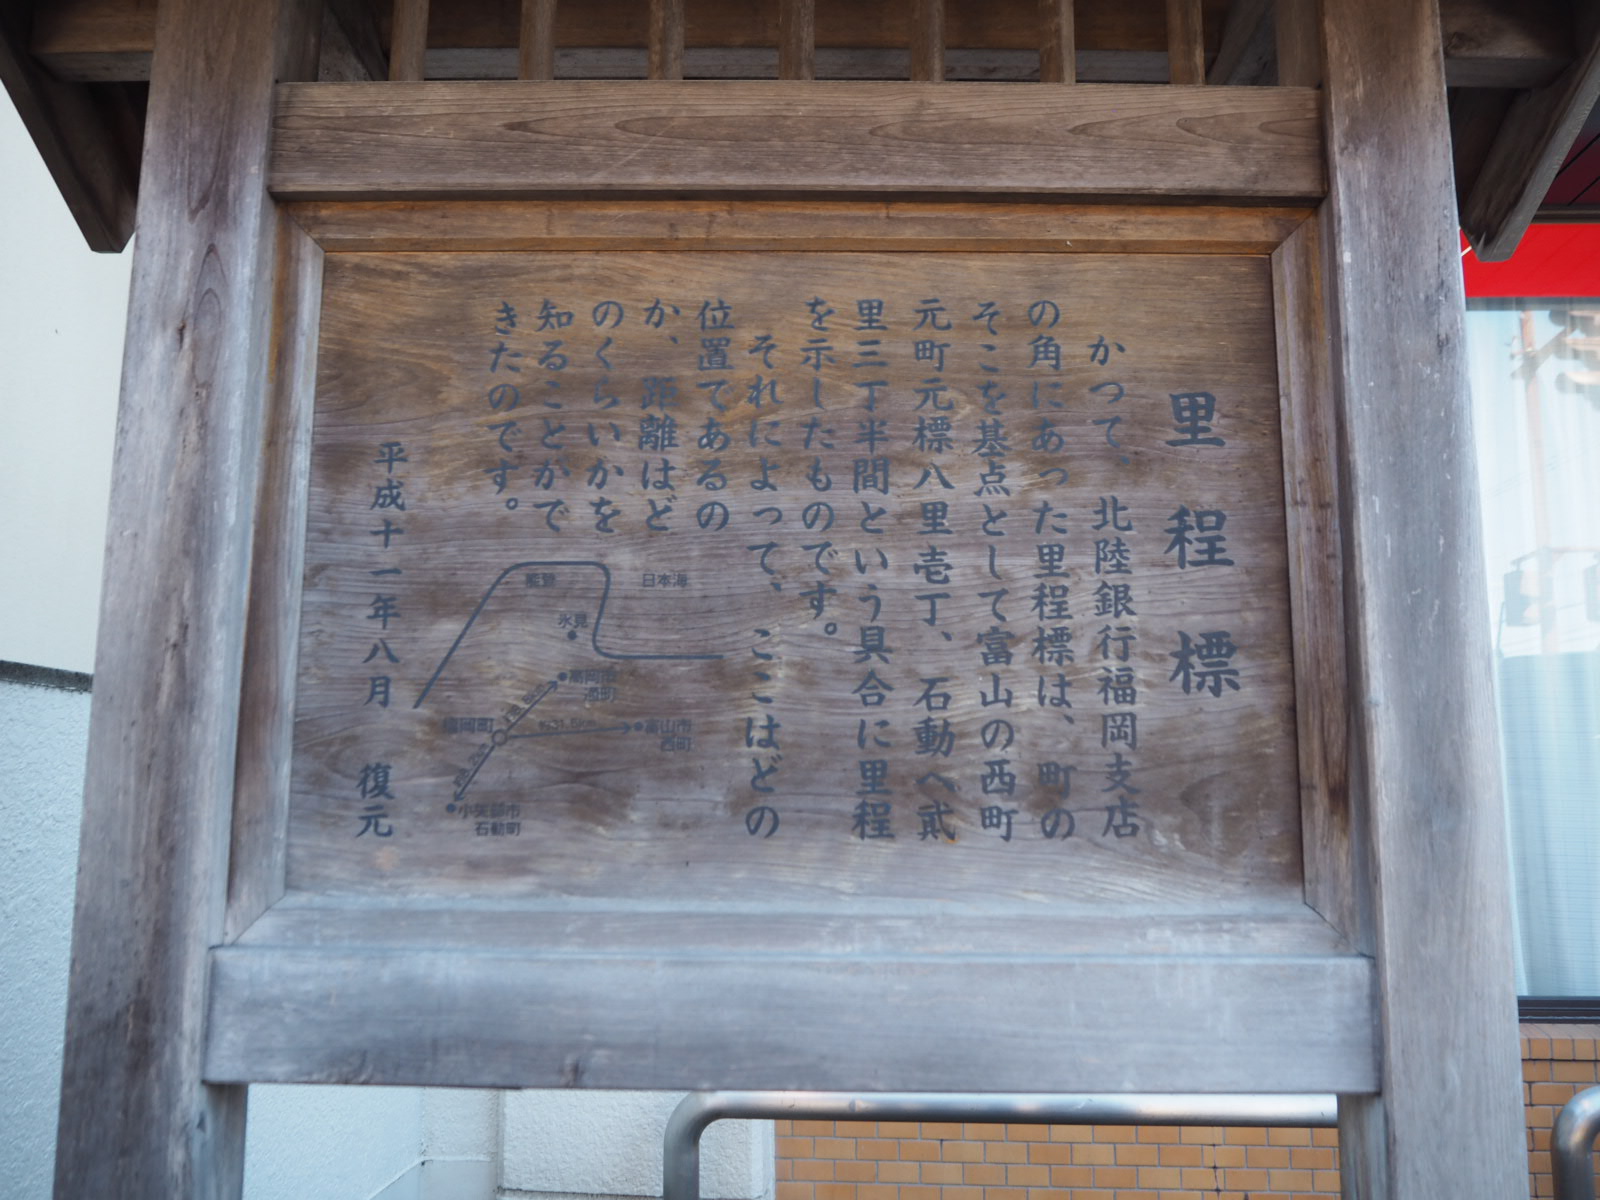 里程標
かつて、北陸銀行福岡支店
の角にあった里程標は、町の
そこを基点として富山の西町
元町元標八里壱丁、石動へ貮
里三丁半間という具合に里程
を示したものです。
それによって、ここはどの
位置であるの
か、距離はど
のくらいかを
知ることがで
きたのです。
平成十一年八月　復元
日本海
能登
氷見
高岡市
福岡町
約31.5km
富山市
西町
小矢部市
石動町